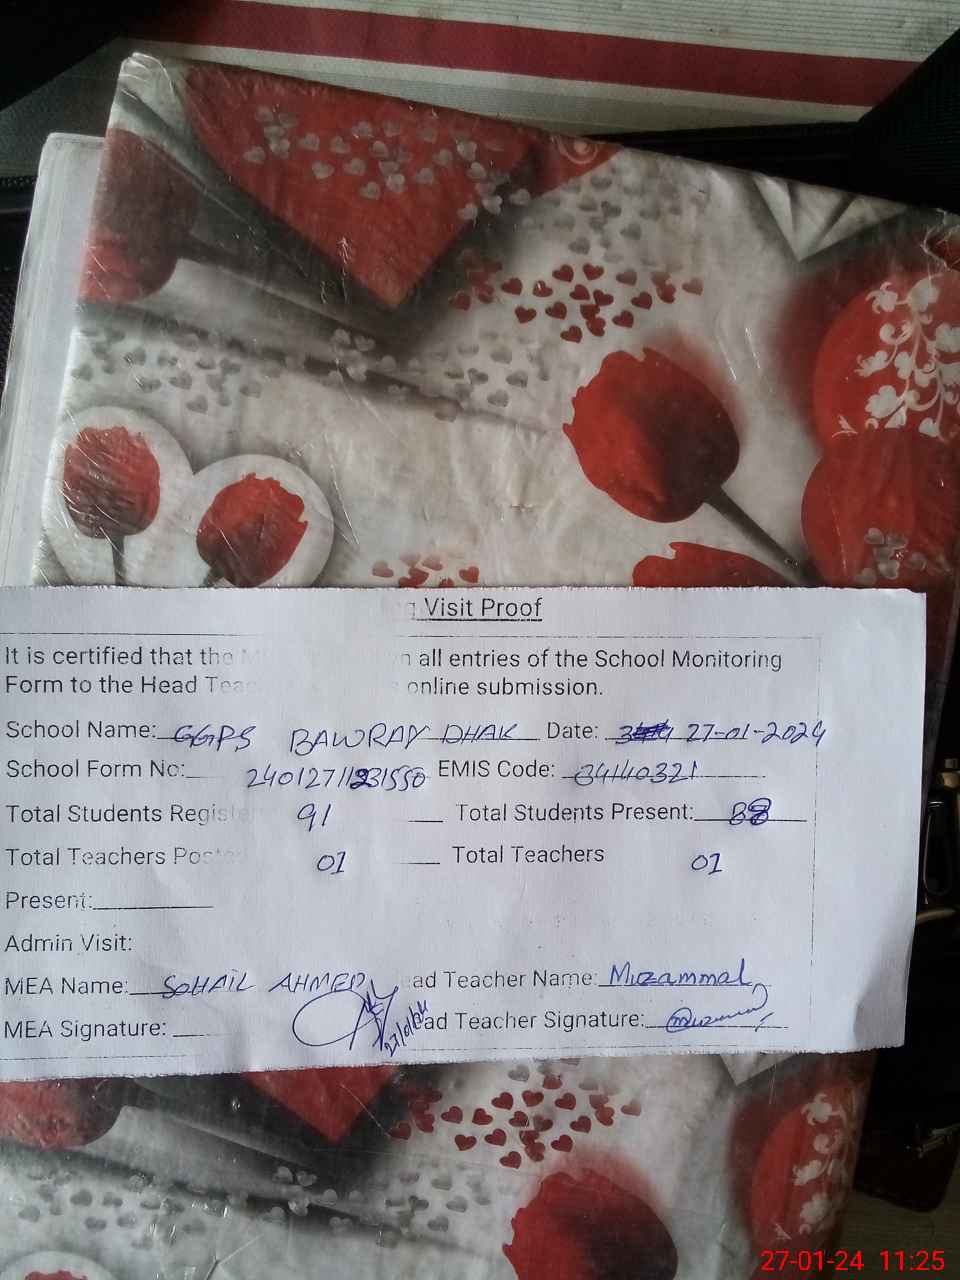 Visit Proof
It is certified that the all entries of the School Monitoring
Form to the Head online submission.
School Name: GGPS BAWRAY DHAK Date: 27-01-2024
School Form No: EMIS Code: 34140321
Total Students 91 Total Students Present: 88
Total Teachers 01 Total Teachers 01
Present:
Admin Visit:
MEA Name: SOHAIL AHMED ad Teacher Name: Muzammal
MEA Signature: 27/01/24 ad Teacher Signature:
27-01-24 11:25